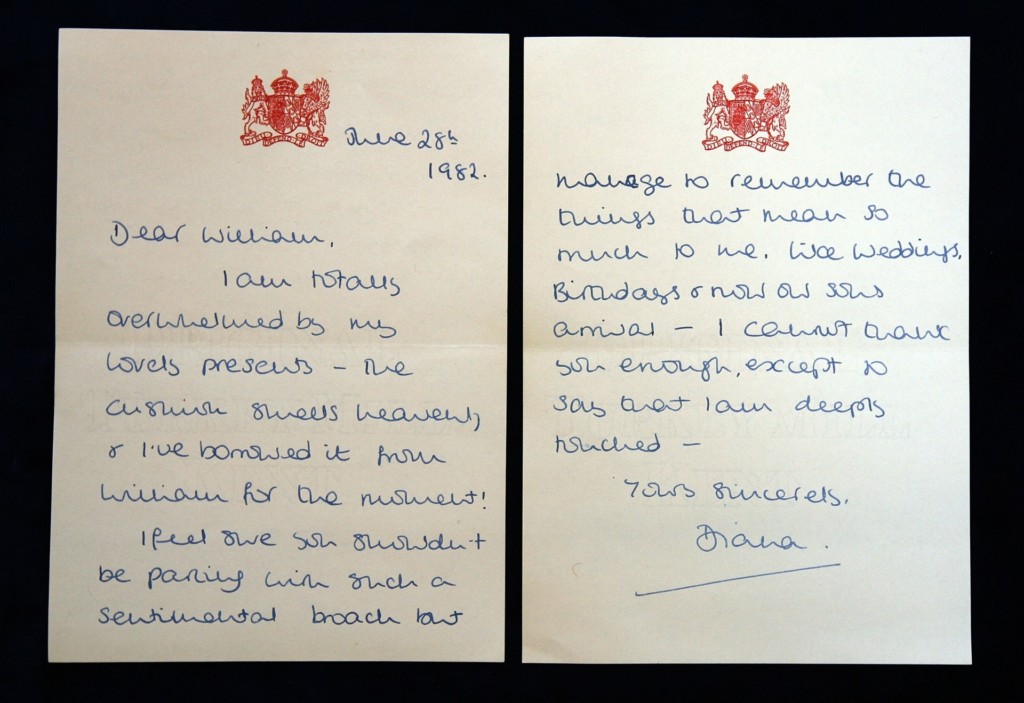 June 28th
1982.
Dear William,
I am totally
overwhelmed by my
lovely presents – the
cushion smells heavenly
& I've borrowed it from
William for the moment!
I feel sure you shouldn't
be parting with such a
sentimental broach but
manage to remember the
things that mean so
much to me. like Weddings,
Birthdays & now our sons
arrival – I cannot thank
you enough, except to
say that I am deeply
touched –
Yours sincerely,
Diana.